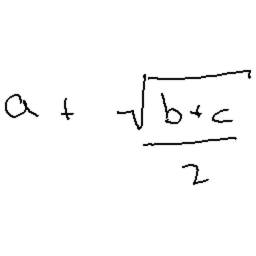 a + √(b+c)/2